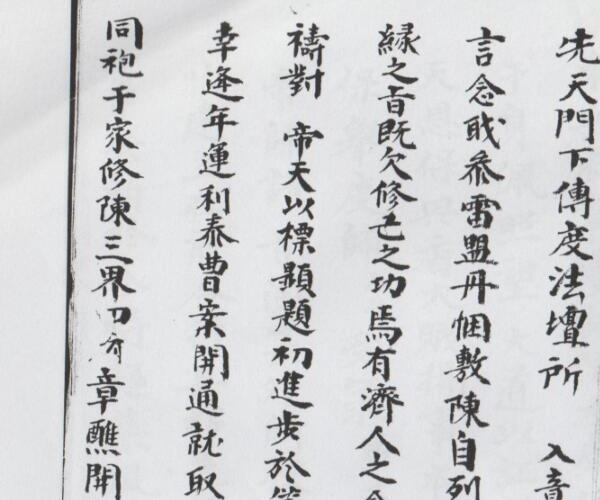 先天門下傳度法壇所　入意
言念戝叅雷盟丹悃敷陳自列
緣之旨旣欠修己之功焉有濟人之
禱對　帝天以標顯題初進步於
幸逢年運利泰曹案開通就取
同袍于家修陳三界章醮開